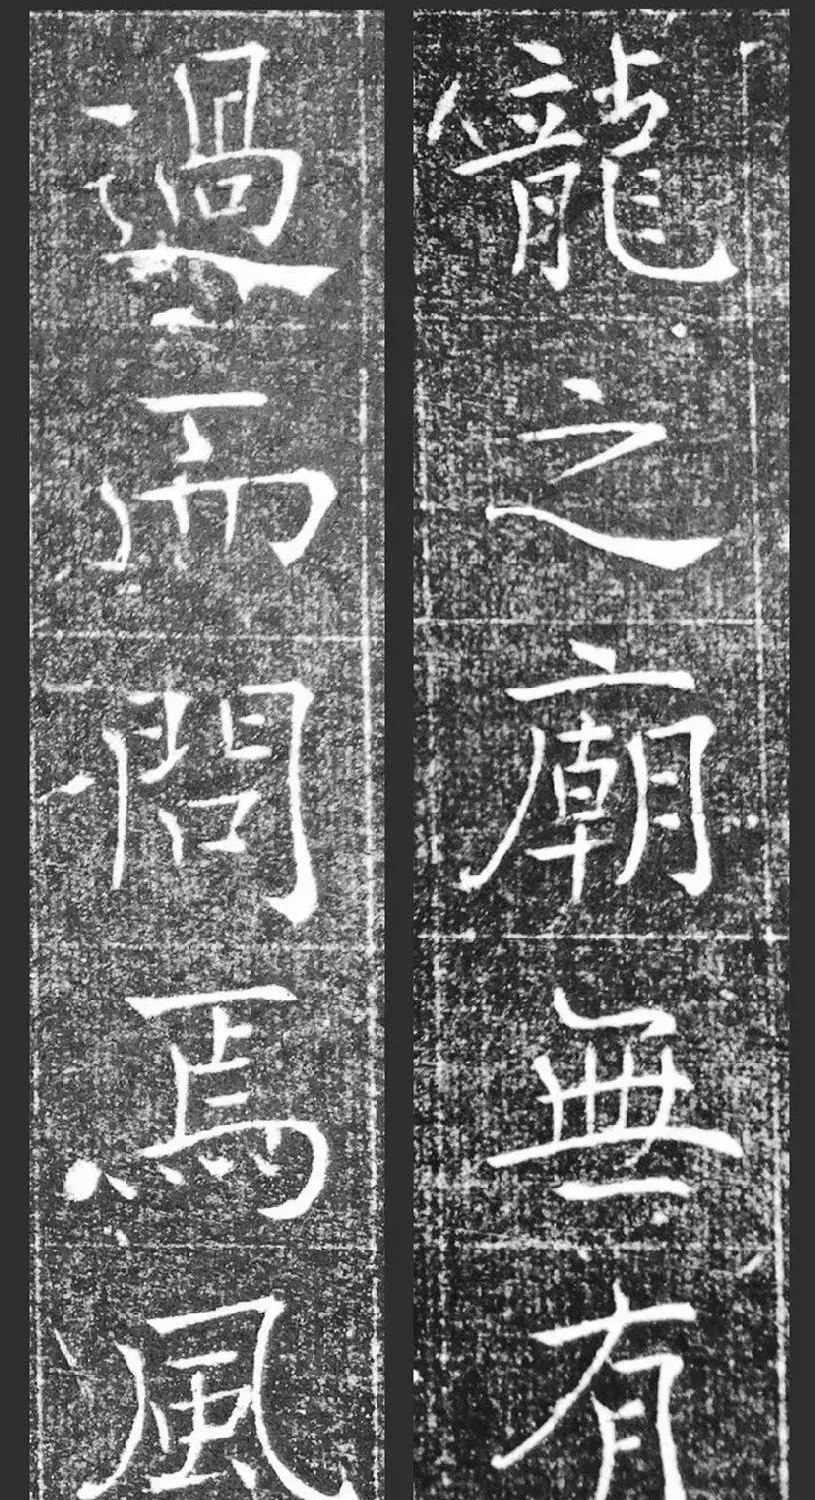 龍之廟無有
過而問焉風